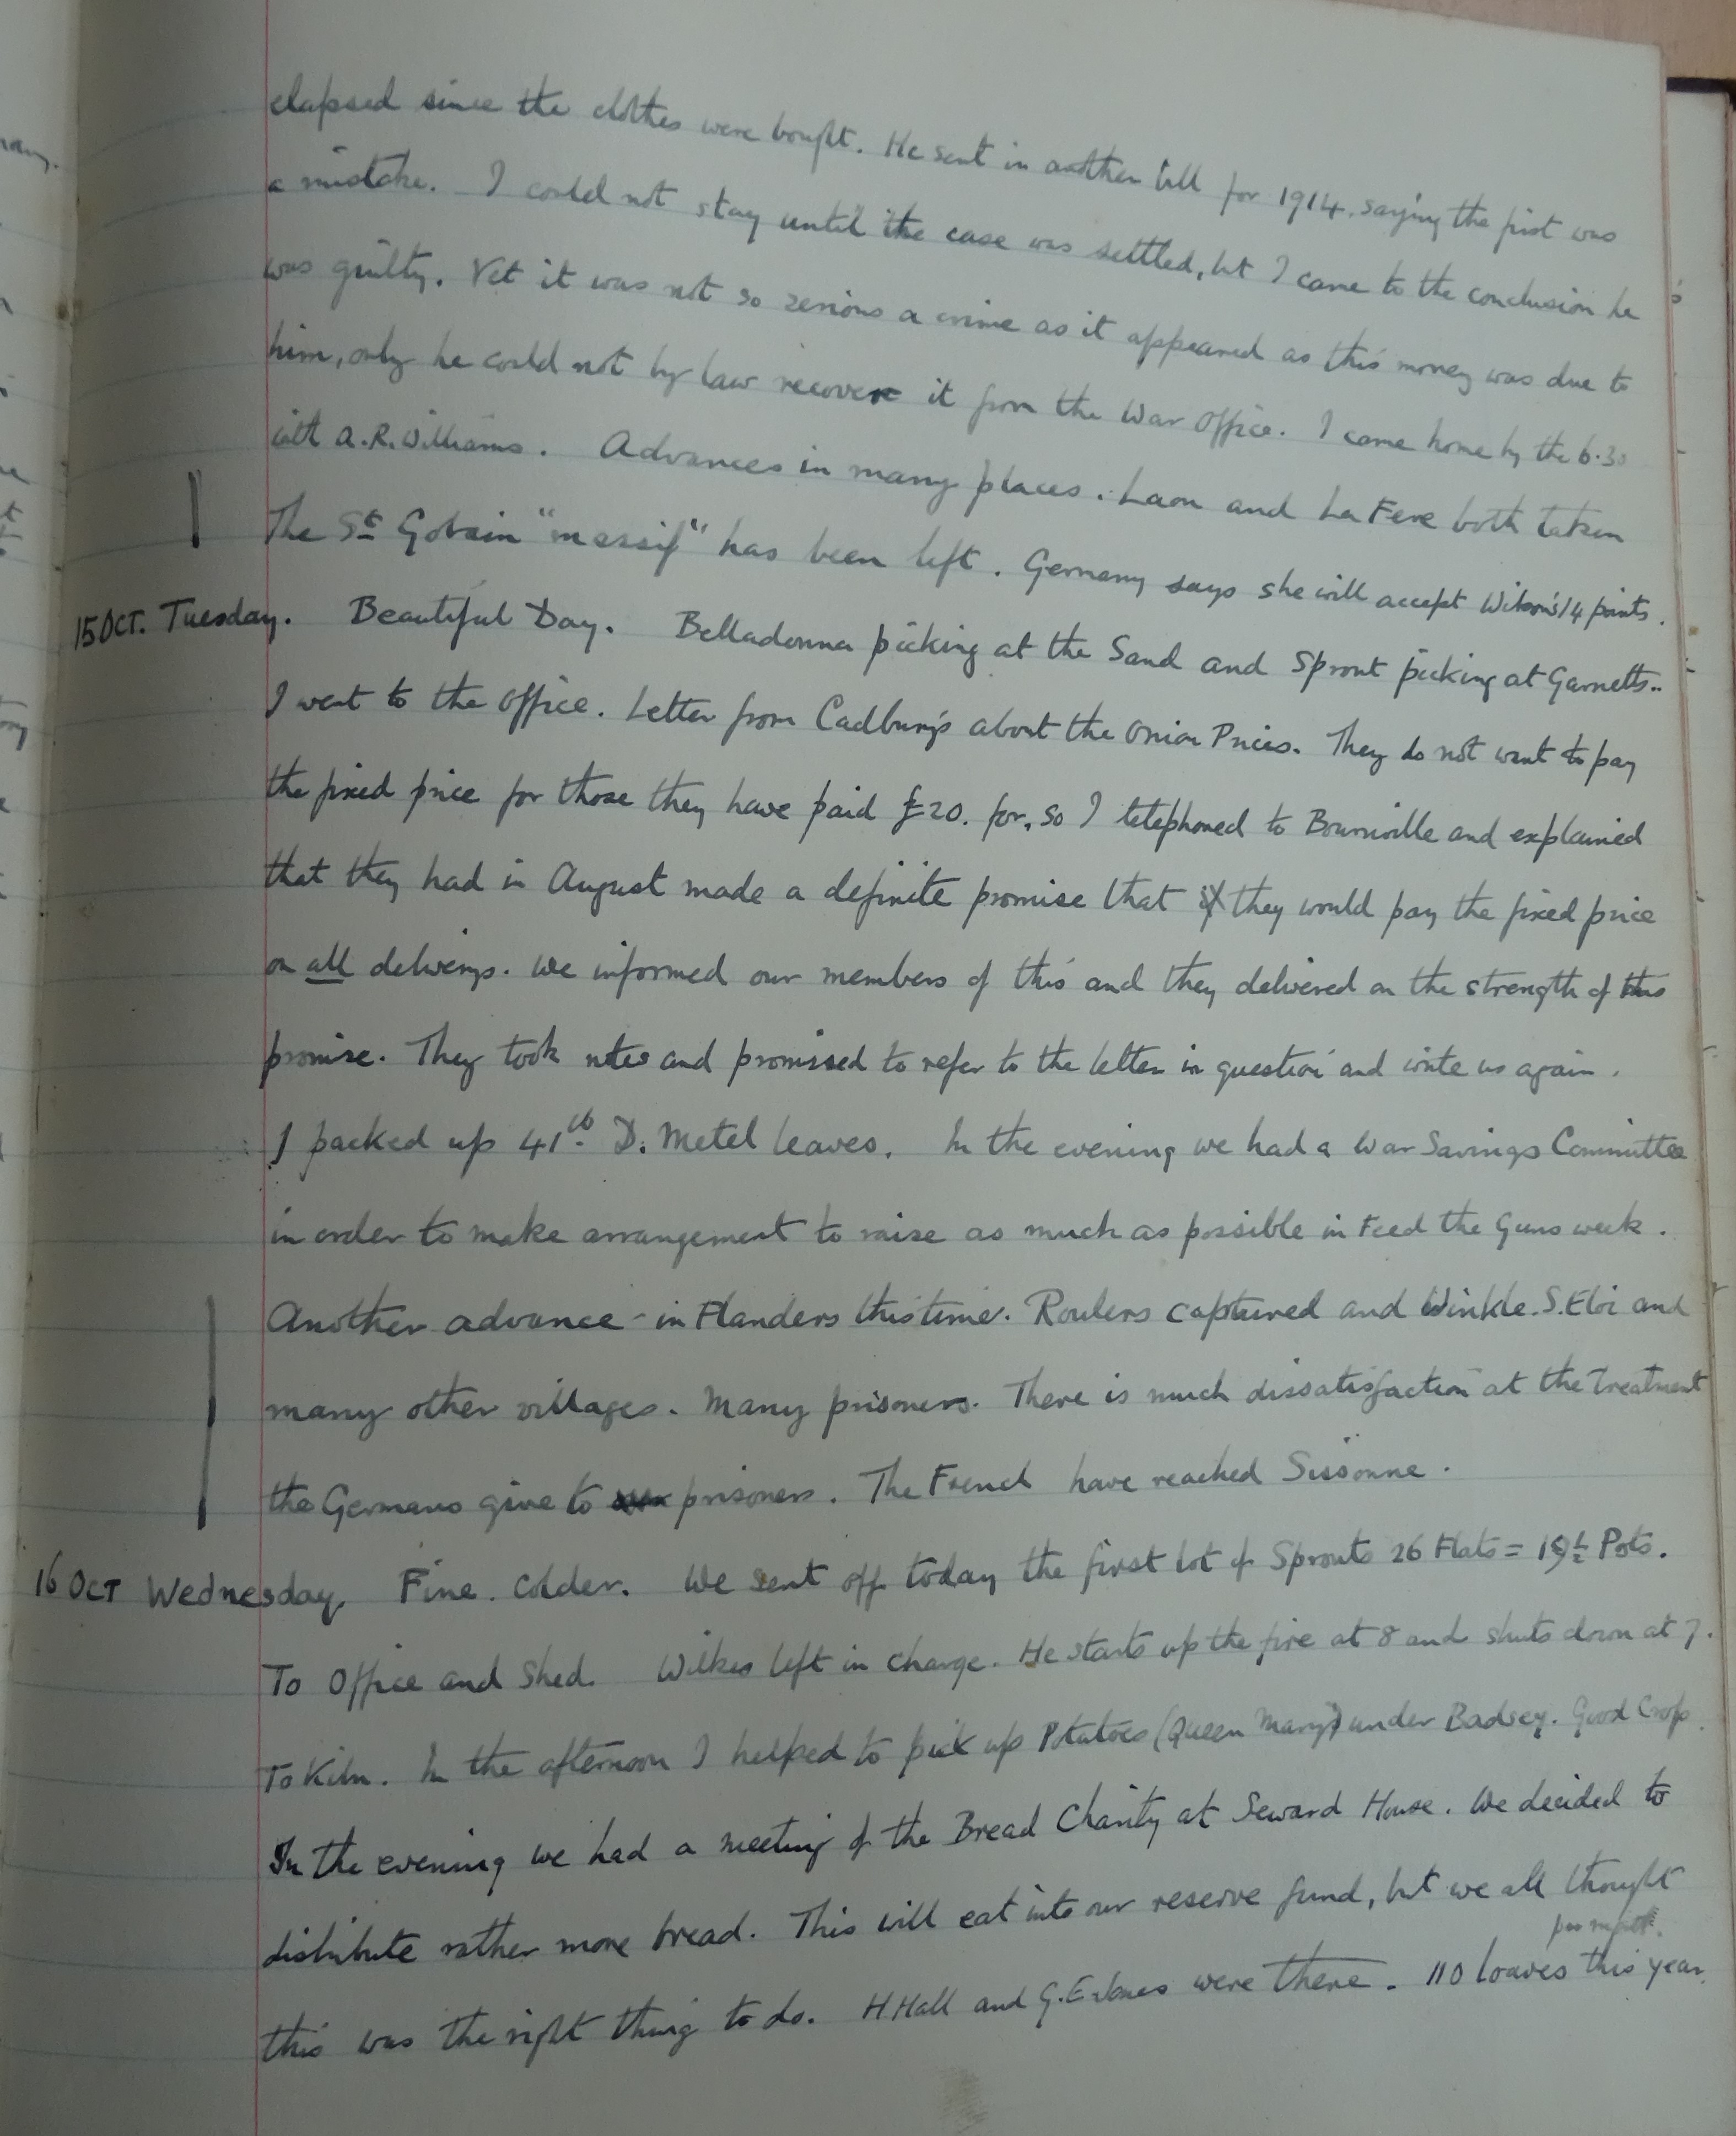 elapsed since the clothes were bought. He sent in another bill for 1914, saying the first was
a mistake. I could not stay until the case was settled, but I came to the conclusion he
was guilty. Yet it was not so serious a crime as it appeared as this money was due to
him, only he could not by law recover it from the War Office. I came home by the 6.30
with A.R. Williams. Advances in many places. Laon and La Fere both taken
The St Gobain "massif" has been left. Germany says she will accept Wilson's 14 points.
15 OCT. Tuesday. Beautiful Day. Belladonna picking at the Sand and Sprout picking at Garnetts..
I went to the Office. Letter from Cadbury's about the Onion Prices. They do not want to pay
the fixed price for those they have paid £20. for, so I telephoned to Bournville and explained
that they had in August made a definite promise that they would pay the fixed price
on all deliverys. We informed our members of this and they delivered on the strength of this
promise. They took notes and promised to refer to the letter in question and write us again.
I packed up 41 lb. D. Metel leaves. In the evening we had a War Savings Committee
in order to make arrangement to raise as much as possible in Feed the Guns week.
Another advance - in Flanders this time. Roulers captured and Winkle. S. Eloi and
many other villages. Many prisoners. There is much dissatisfaction at the treatment
the Germans give to prisoners. The French have reached Sissonne.
16 OCT Wednesday. Fine. Colder. We sent off today the first lot of Sprouts 26 Flats = 19½ Pots.
To Office and Shed. Wilkes left in charge. He starts up the fire at 8 and shuts down at 7.
To Kiln. In the afternoon I helped to pick up Potatoes (Queen Mary's) under Badsey. Good Crop.
In the evening we had a meeting of the Bread Charity at Seward House. We decided to
distribute rather more bread. This will eat into our reserve fund, but we all thought
this was the right thing to do. H Hall and G. E Jones were there. 110 loaves this year.